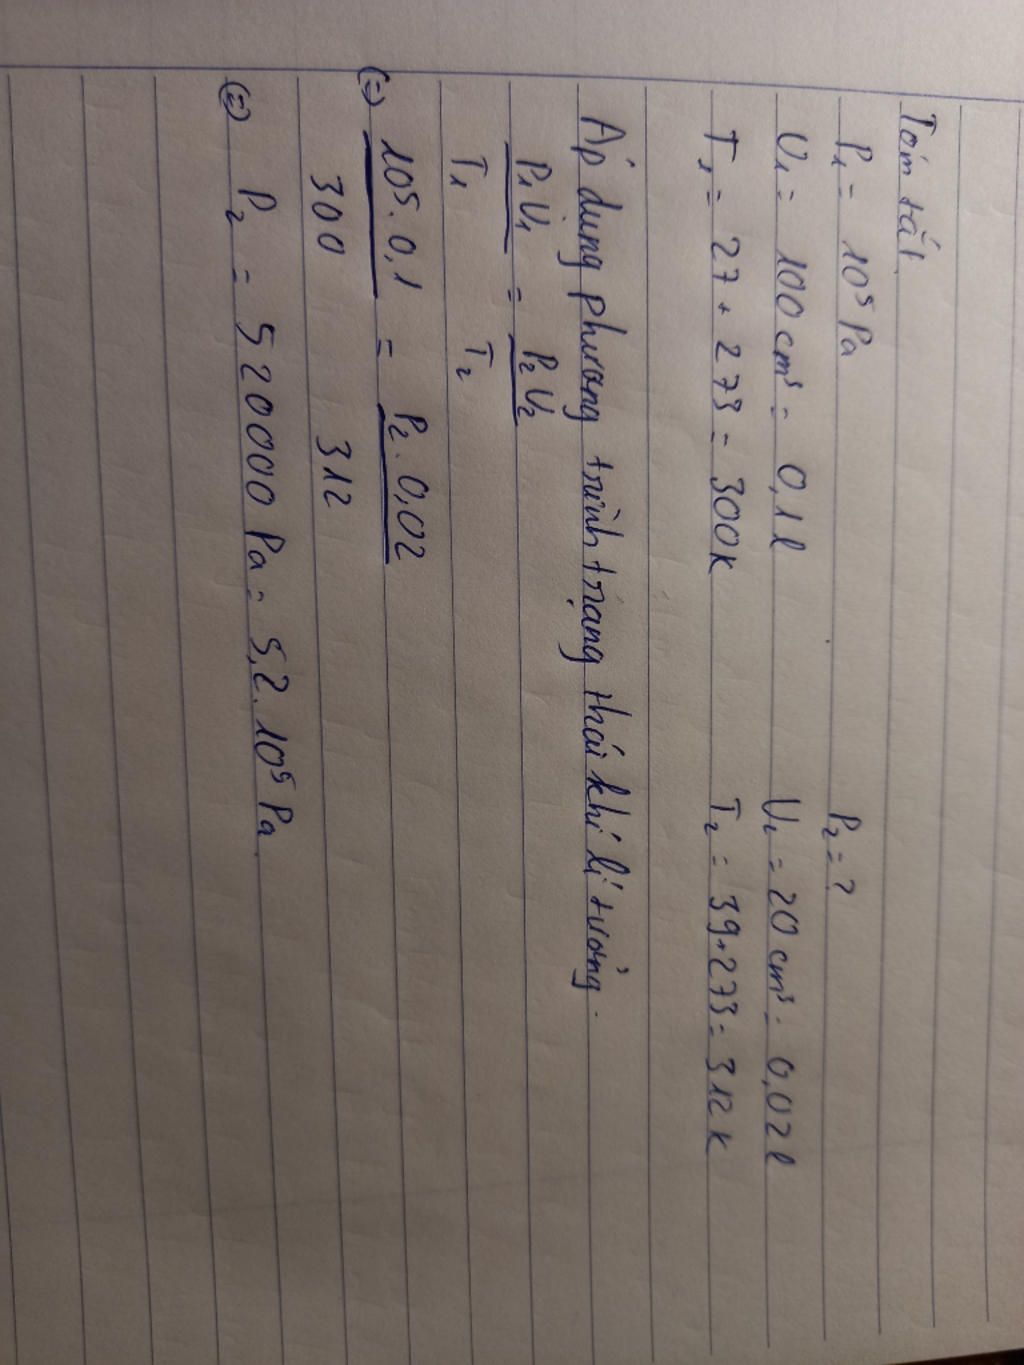 Tóm tắt
P₁ = 10⁵ Pa P₂ = ?
V₁ = 100 cm³ = 0,1 l V₂ = 20 cm³ = 0,02 l
T₁ = 27 + 273 = 300K T₂ = 39 + 273 = 312 K
Áp dụng phương trình trạng thái khí lí tưởng.
P₁V₁ = P₂V₂
T₁ T₂
(=) 10⁵. 0,1 = P₂. 0,02
300 312
(=) P₂ = 520000 Pa = 5,2. 10⁵ Pa.